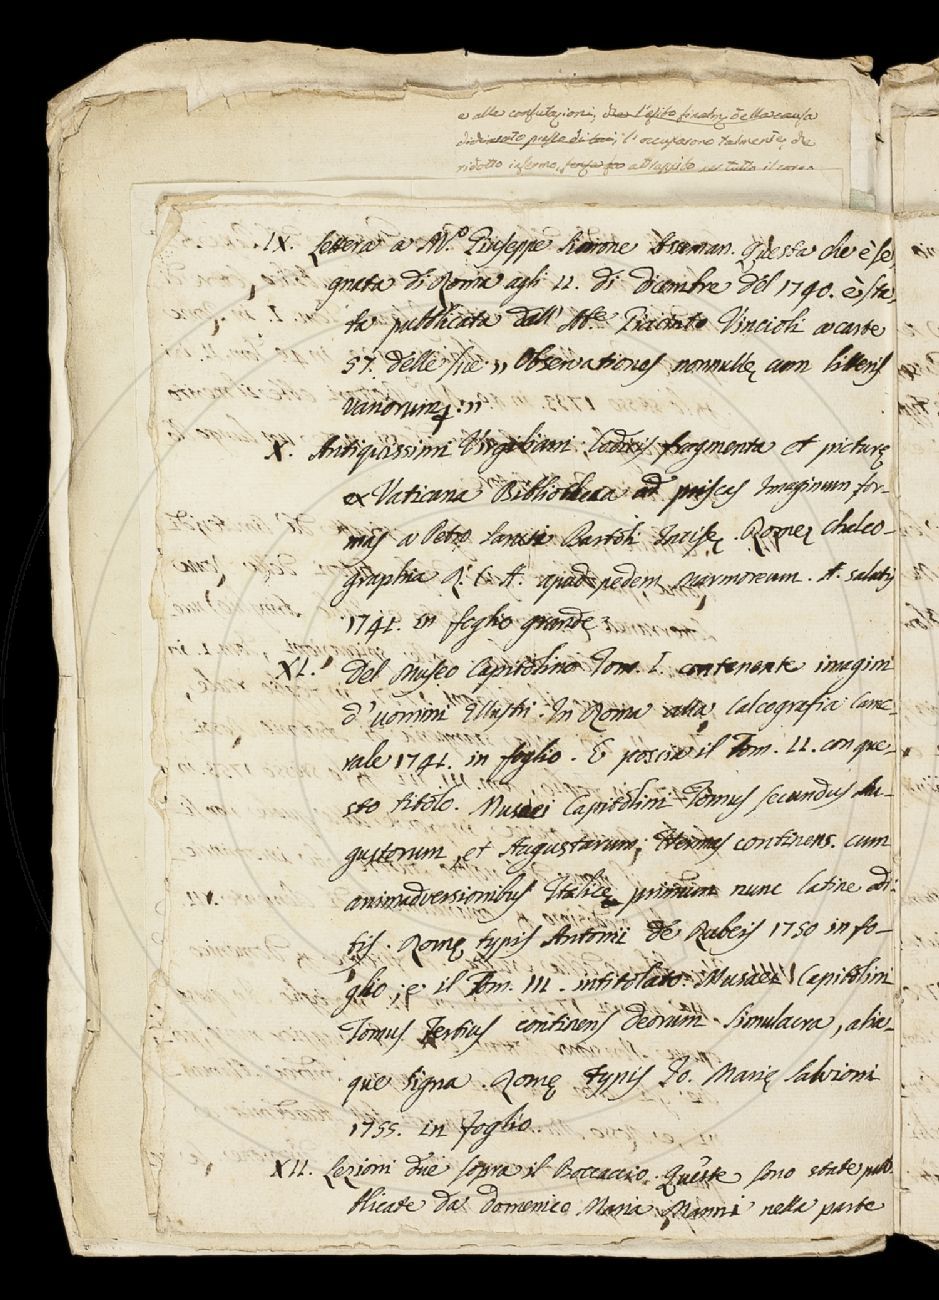 e alle confutazioni, che l'esito finale della causa
ridotto infermo, per tutto il corso
IX. Lettera a M.º Giuseppe Simone Asseman. Questa che è se-
gnata di Roma agli 11. di dicembre del 1740. è sta-
ta pubblicata dall' Ab.e Giacinto Vincioli a carte
57. delle sue „ Observationes nonnullę cum litteris
Variorum. „
X. Antiquissimi Virgiliani Codicis fragmenta et picturę
ex Vaticana Bibliotheca ad priscas Imaginum for-
mas a Petro Sancti Bartoli Incisę. Romę Chalco-
graphia R. C. A. apud pedem marmoreum. A. salutis
1741. in foglio grande.
XI. Del Museo Capitolino Tom. I. contenente imagini
d'uomini Illustri. In Roma alla Calcografia Came-
rale 1741. in foglio. E poscia il Tom. II. con que-
sto titolo. Musaei Capitolini Tomus secundus Au-
gustorum, et Augustarum, Hermas continens. cum
animadversionibus Italice primum nunc latine edi-
tis. Romę typis Antonii de Rubeis 1750 in fo-
glio; e il Tom. III. intitolato: Musaei Capitolini
Tomus Tertius continens deorum Simulacra, alia-
que signa. Romę typis Jo. Marię Salvioni
1755. in foglio.
XII. Lezioni due sopra il Boccaccio. Queste sono state pub-
blicate da Domenico Maria Manni nella parte